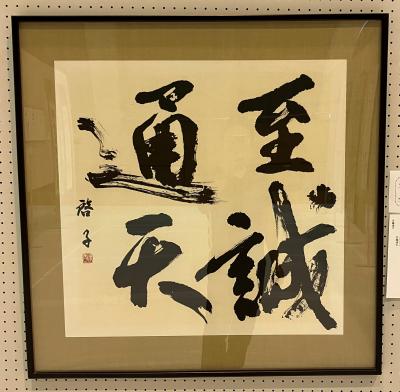 至誠
通天
啓子